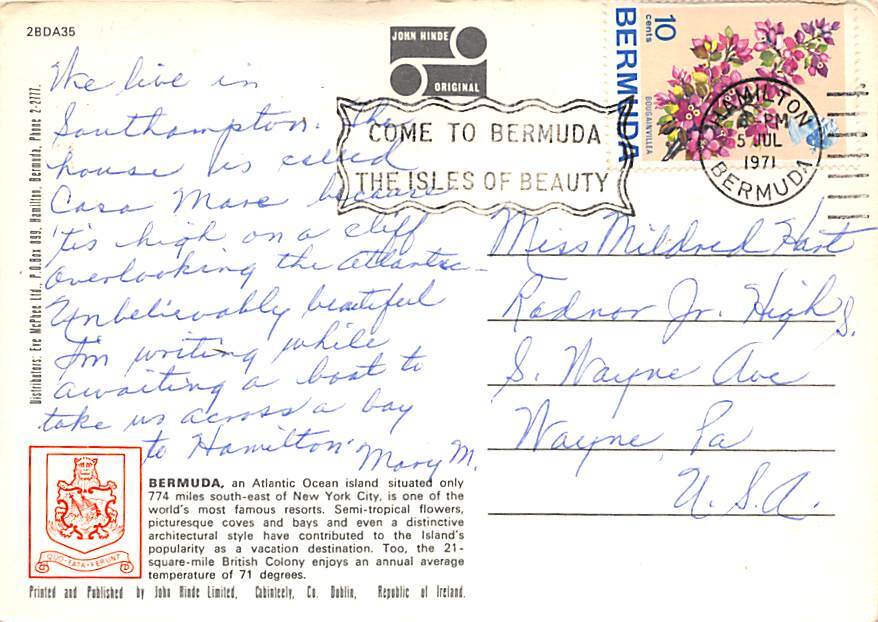 2BDA35
JOHN HINDE
ORIGINAL
10 cents
BERMUDA
BOUGAINVILLEA
HAMILTON
PM
5 JUL
1971
BERMUDA
COME TO BERMUDA
THE ISLES OF BEAUTY
We live in
Southampton. The
house is called
Casa Mare because
'tis high on a cliff
overlooking the Atlantic -
Unbelievably beautiful
I'm writing while
awaiting a boat to
take us across a bay
to Hamilton.
Mary M.
Miss Mildred Hart
Radnor Jr. High S.
S. Wayne Ave
Wayne, Pa
U.S.A.
Distributors: Eve McPhee Ltd., P.O.Box 899, Hamilton, Bermuda, Phone 2-2777.
QUO FATA FERUNT
BERMUDA, an Atlantic Ocean island situated only
774 miles south-east of New York City, is one of the
world's most famous resorts. Semi-tropical flowers,
picturesque coves and bays and even a distinctive
architectural style have contributed to the Island's
popularity as a vacation destination. Too, the 21-
square-mile British Colony enjoys an annual average
temperature of 71 degrees.
Printed and Published by John Hinde Limited, Cabinteely, Co. Dublin, Republic of Ireland.